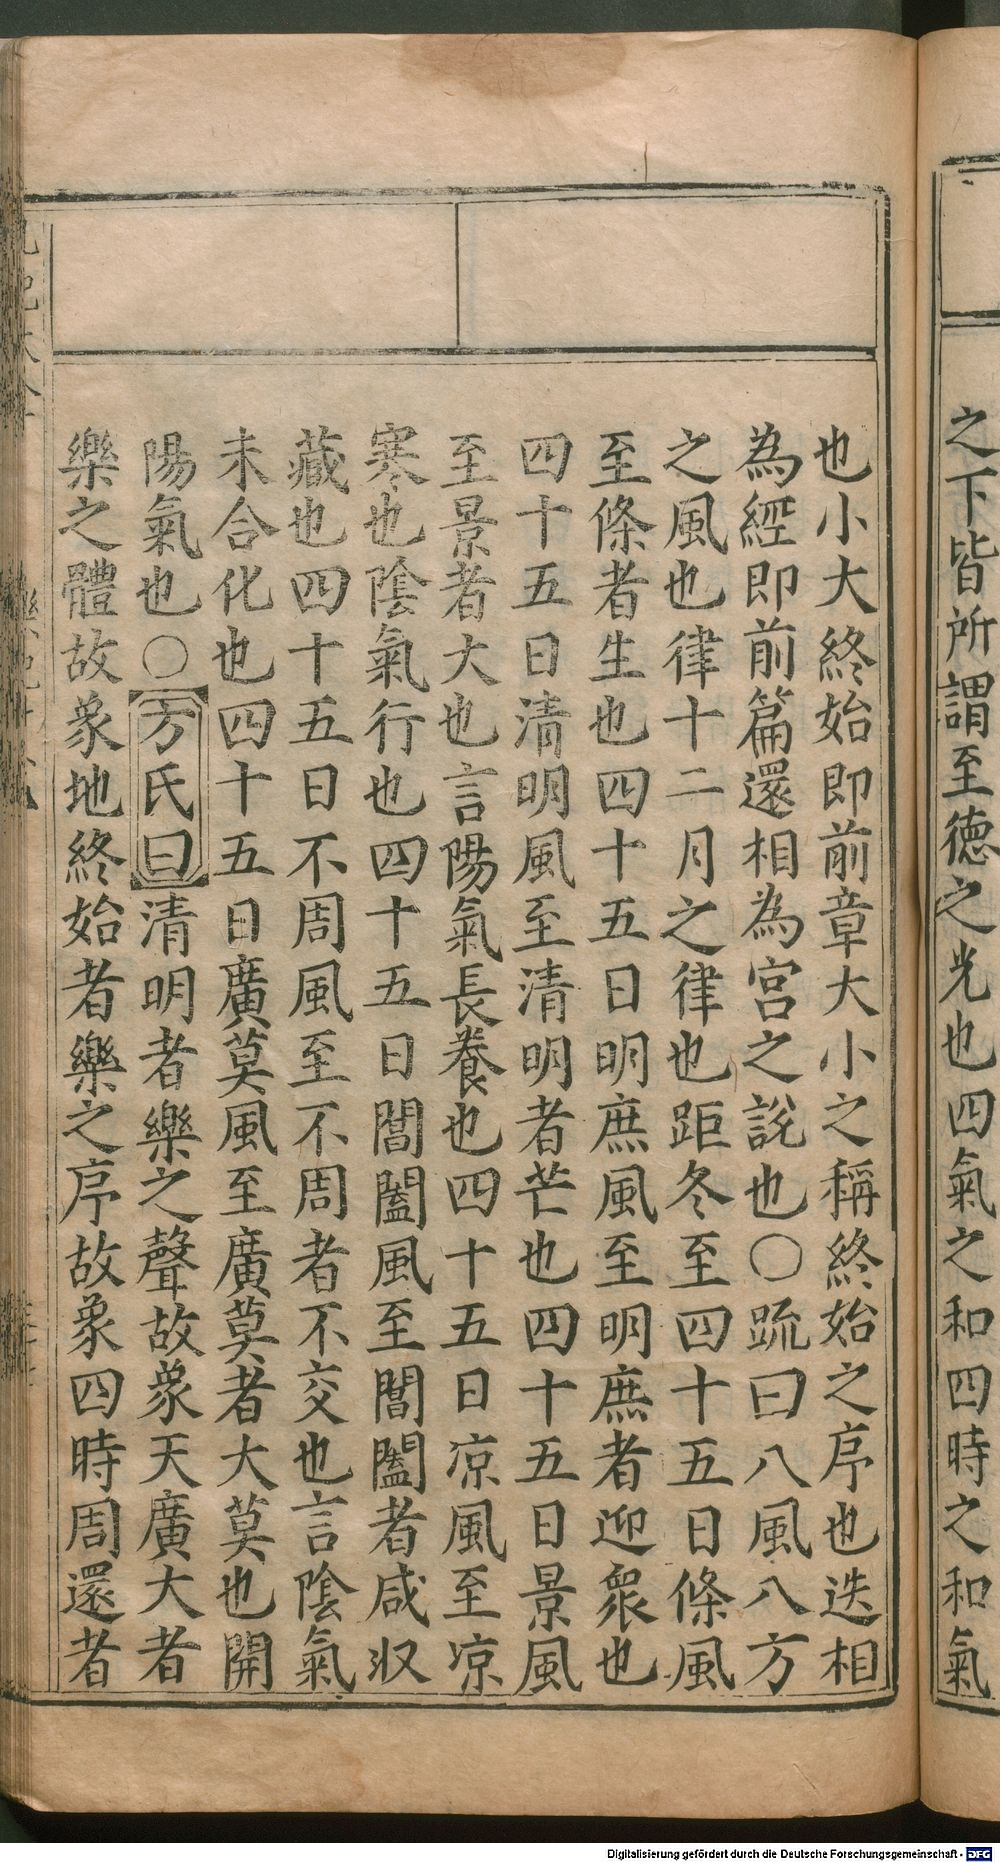 之下皆所謂至德之光也四氣之和四時之和氣
也小大終始即前章大小之稱終始之序也迭相
為經即前篇還相為宮之說也○䟽曰八風八方
之風也律十二月之律也距冬至四十五日條風
至條者生也四十五日明庶風至明庶者迎衆也
四十五日清明風至清明者芒也四十五日景風
至景者大也言陽氣長養也四十五日凉風至凉
寒也陰氣行也四十五日閶闔風至閶闔者咸収
藏也四十五日不周風至不周者不交也言陰氣
未合化也四十五日廣莫風至廣莫者大莫也開
陽氣也○方氏曰清明者樂之聲故象天廣大者
樂之體故象地終始者樂之序故象四時周還者
Digitalisierung gefördert durch die Deutsche Forschungsgemeinschaft - DFG